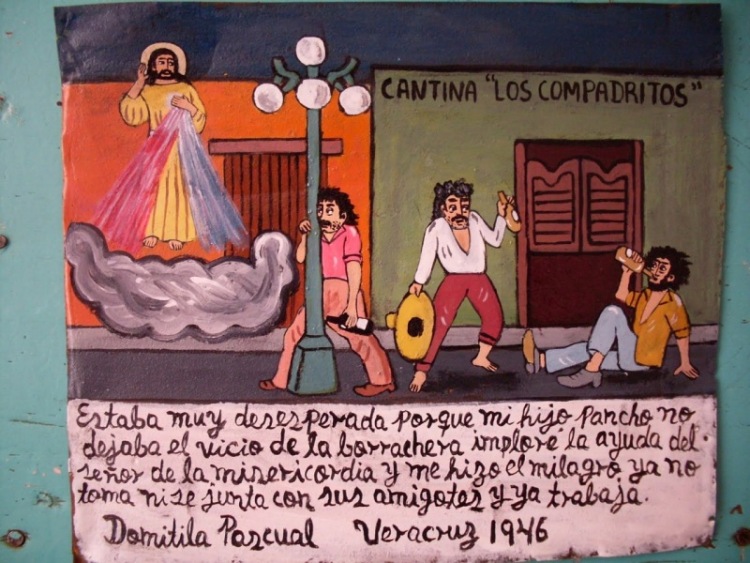 CANTINA "LOS COMPADRITOS"
Estaba muy desesperada porque mi hijo Pancho no
dejaba el vicio de la borrachera implore la ayuda del
señor de la misericordia y me hizo el milagro ya no
toma ni se junta con sus amigotes y ya trabaja.
Domitila Pascual Veracruz 1946